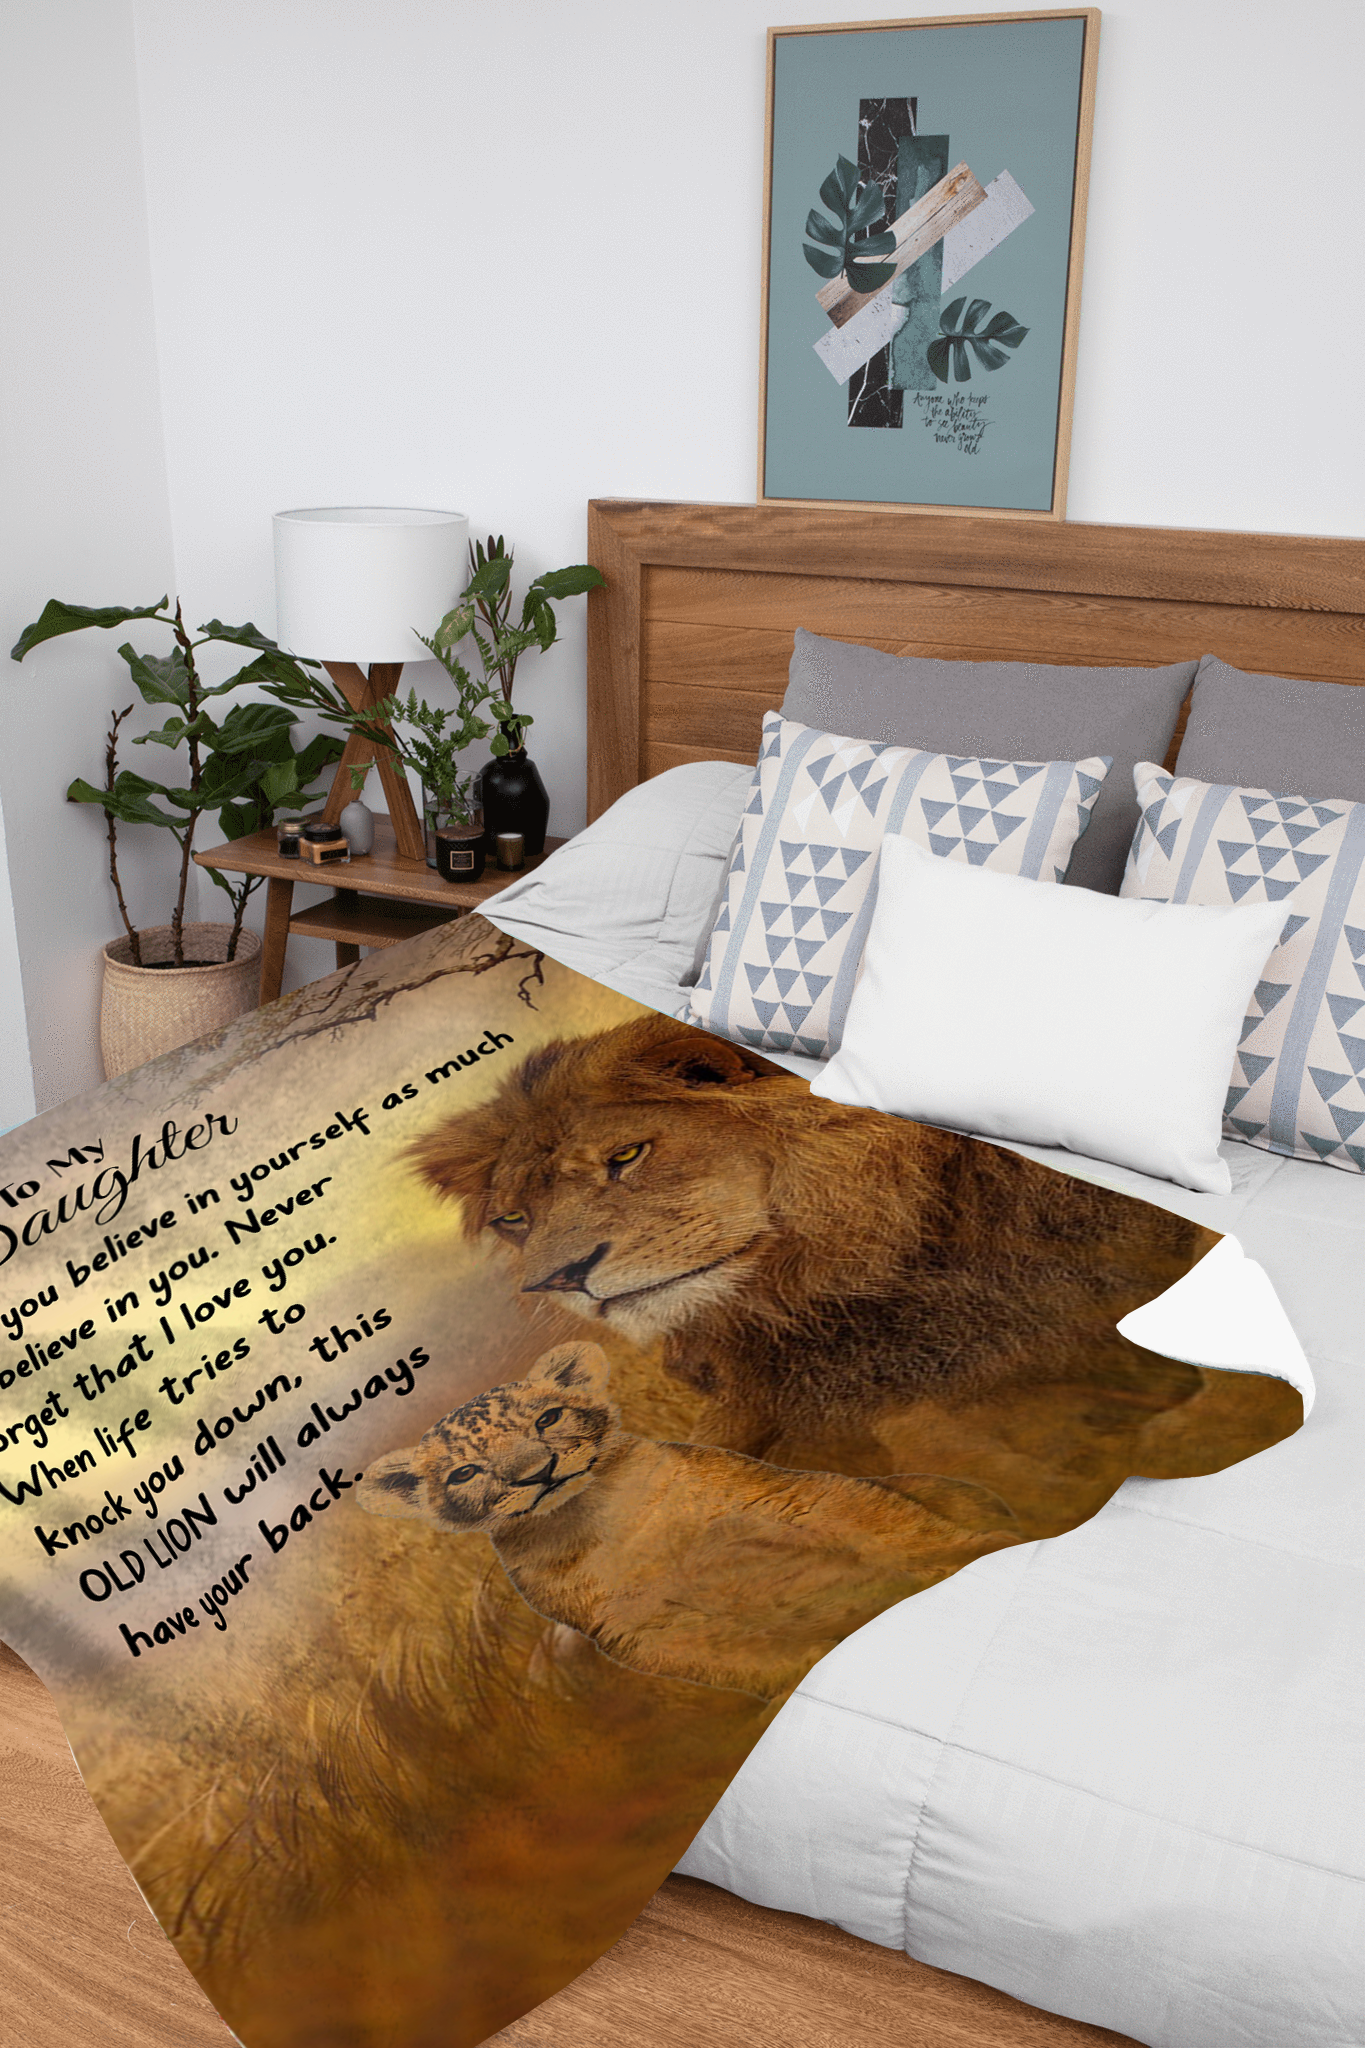 Anyone who keeps
the ability
to see beauty
never grows
old
To My
Daughter
you believe in yourself as much
believe in you. Never
orget that I love you.
When life tries to
knock you down, this
OLD LION will always
have your back.